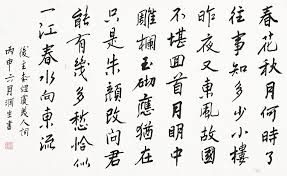 春花秋月何時了
往事知多少小樓
昨夜又東風故國
不堪回首月明中
雕欄玉砌應猶在
只是朱顏改問君
能有幾多愁恰似
一江春水向東流
後主李煜虞美人詞
丙申六月生書